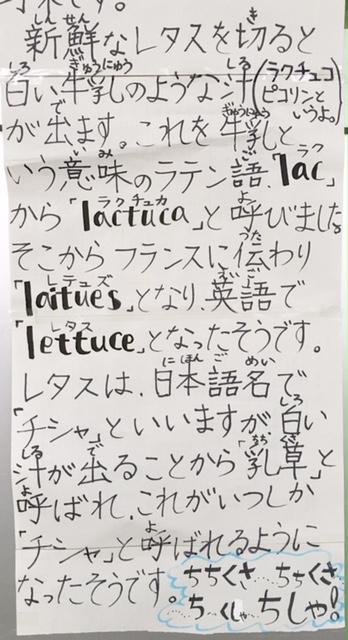 新鮮なレタスを切ると
白い牛乳のような汁(ラクチュコピコリンというよ。)
が出ます。これを牛乳と
いう意味のラテン語、「lac」
から「lactuca」と呼びました
そこからフランスに伝わり
「laitues」となり、英語で
「lettuce」となったそうです。
レタスは、日本語名で
「チシャ」といいますが白い
汁が出ることから「乳草」と
呼ばれ、これがいつしか
「チシャ」と呼ばれるように
なったそうです。
ちちくさ…ちちくさ…
ち…くしゃ…ちしゃ!